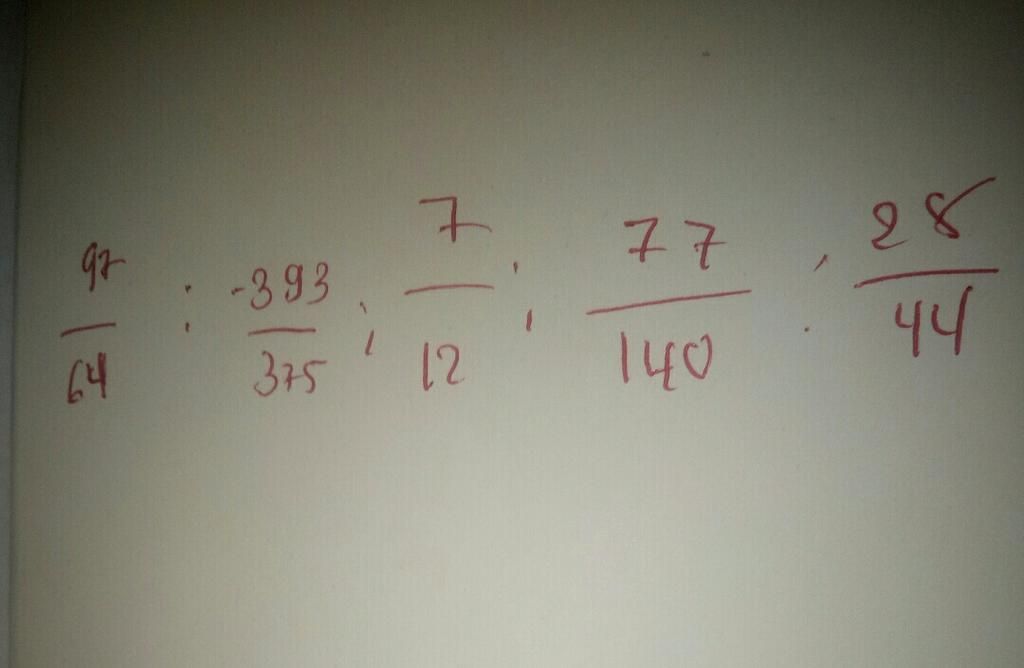 97/64 : -393/375 ; 7/12 ; 77/140 : 28/44